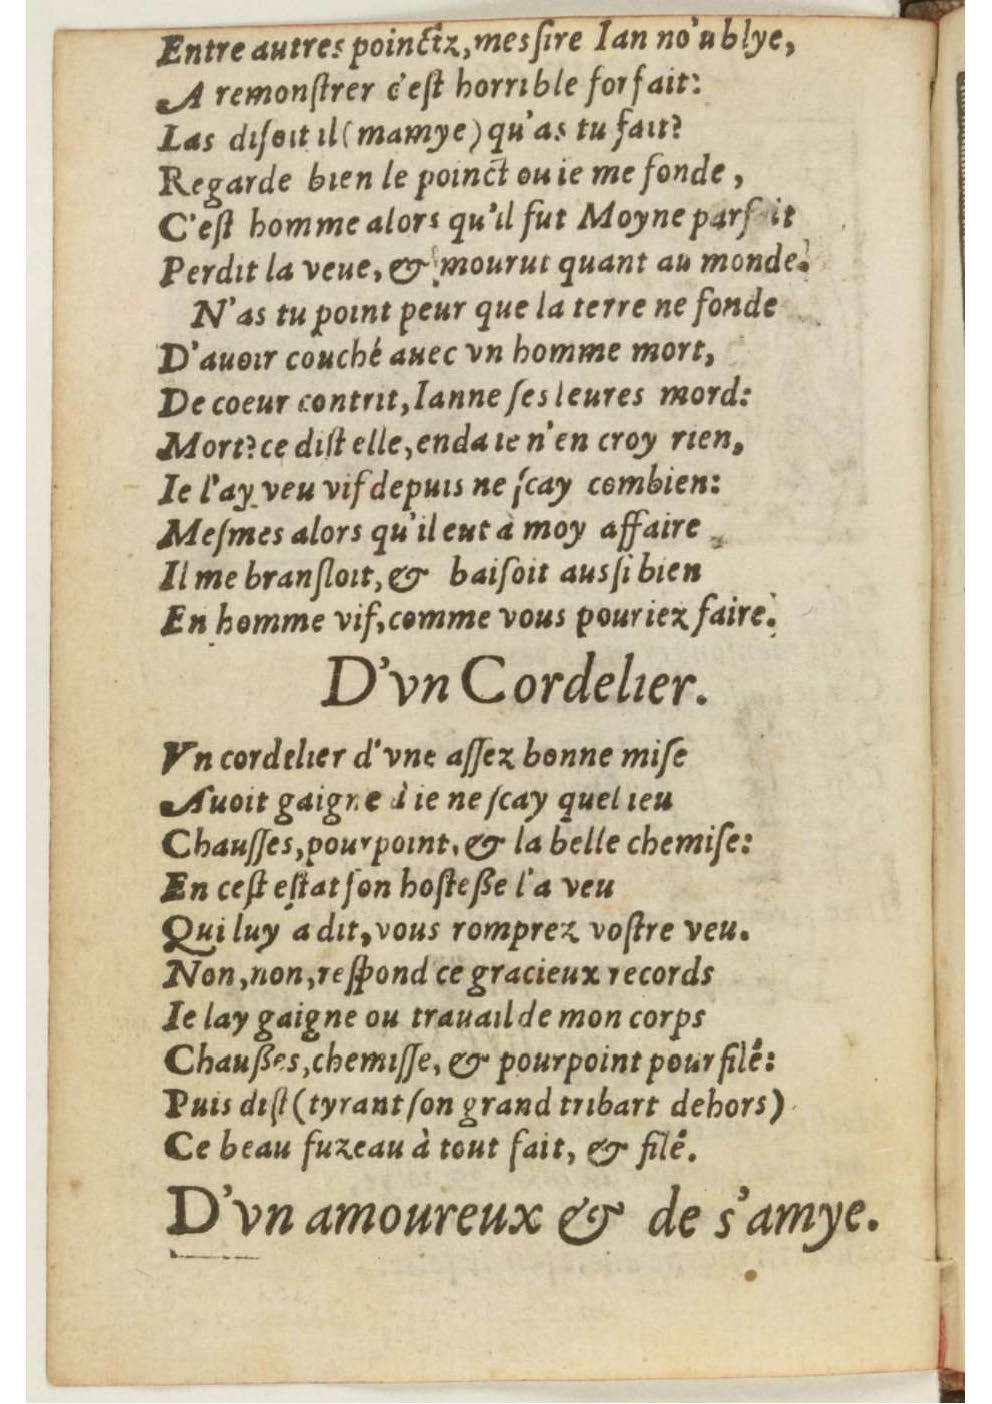 Entre autres poinctz, messire Ian no'ublye,
A remonſtrer c'eſt horrible forfait:
Las diſoit il (mamye) qu'as tu fait?
Regarde bien le poinct ou ie me fonde,
C'eſt homme alors qu'il fut Moyne parfait
Perdit la veue, & mourut quant au monde.
N'as tu point peur que la terre ne fonde
D'auoir couché auec vn homme mort,
De coeur contrit, Ianne ſes leures mord:
Mort? ce diſt elle, enda ie n'en croy rien,
Ie l'ay veu vif depuis ne ſcay combien:
Meſmes alors qu'il eut à moy affaire
Il me branſloit, & baiſoit auſſi bien
En homme vif, comme vous pouriez faire.
D'vn Cordelier.
Vn cordelier d'vne aſſez bonne miſe
Auoit gaigne à ie ne ſcay quel ieu
Chauſſes, pourpoint, & la belle chemiſe:
En ceſt eſtat ſon hoſteße l'a veu
Qui luy a dit, vous romprez voſtre veu.
Non, non, reſpond ce gracieux records
Ie lay gaigne ou trauail de mon corps
Chaußes, chemiſſe, & pourpoint pour filé:
Puis diſt (tyrant ſon grand tribart dehors)
Ce beau fuzeau à tout fait, & filé.
D'vn amoureux & de s'amye.